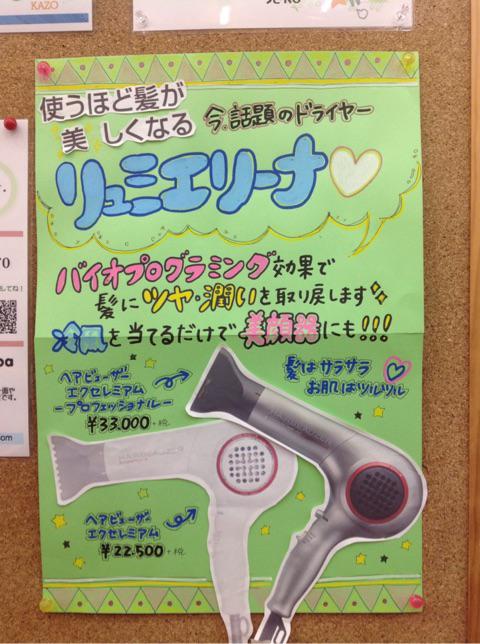 KAZO
使うほど髪が
美しくなる
今、話題のドライヤー
リュミエリーナ
バイオプログラミング効果で
髪にツヤ・潤いを取り戻します
冷風を当てるだけで美顔器にも!!!
ヘアビューザー
エクセレミアム
-プロフェッショナル-
¥33,000+税
髪はサラサラ
お肌はツルツル
ヘアビューザー
エクセレミアム
¥22,500+税